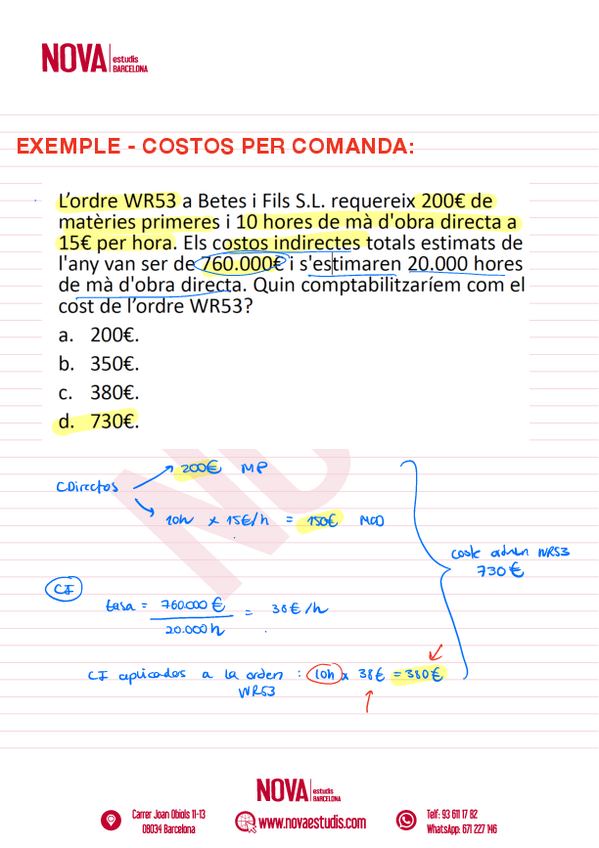 NOVA estudis BARCELONA
EXEMPLE - COSTOS PER COMANDA:
L'ordre WR53 a Betes i Fils S.L. requereix 200€ de
matèries primeres i 10 hores de mà d'obra directa a
15€ per hora. Els costos indirectes totals estimats de
l'any van ser de 760.000€ i s'estimaren 20.000 hores
de mà d'obra directa. Quin comptabilitzaríem com el
cost de l'ordre WR53?
a. 200€.
b. 350€.
c. 380€.
d. 730€.
200€ MP
CDirectos
10h x 15€/h = 150€ MOD
coste orden WR53
730€
CI
tasa = 760.000€ = 38€/h
20.000h
CI aplicados a la orden : 10h x 38€ = 380€
WR53
NOVA estudis BARCELONA
Carrer Joan Obiols 11-13
08034 Barcelona
www.novaestudis.com
Telf: 93 611 17 82
WhatsApp: 671 227 146